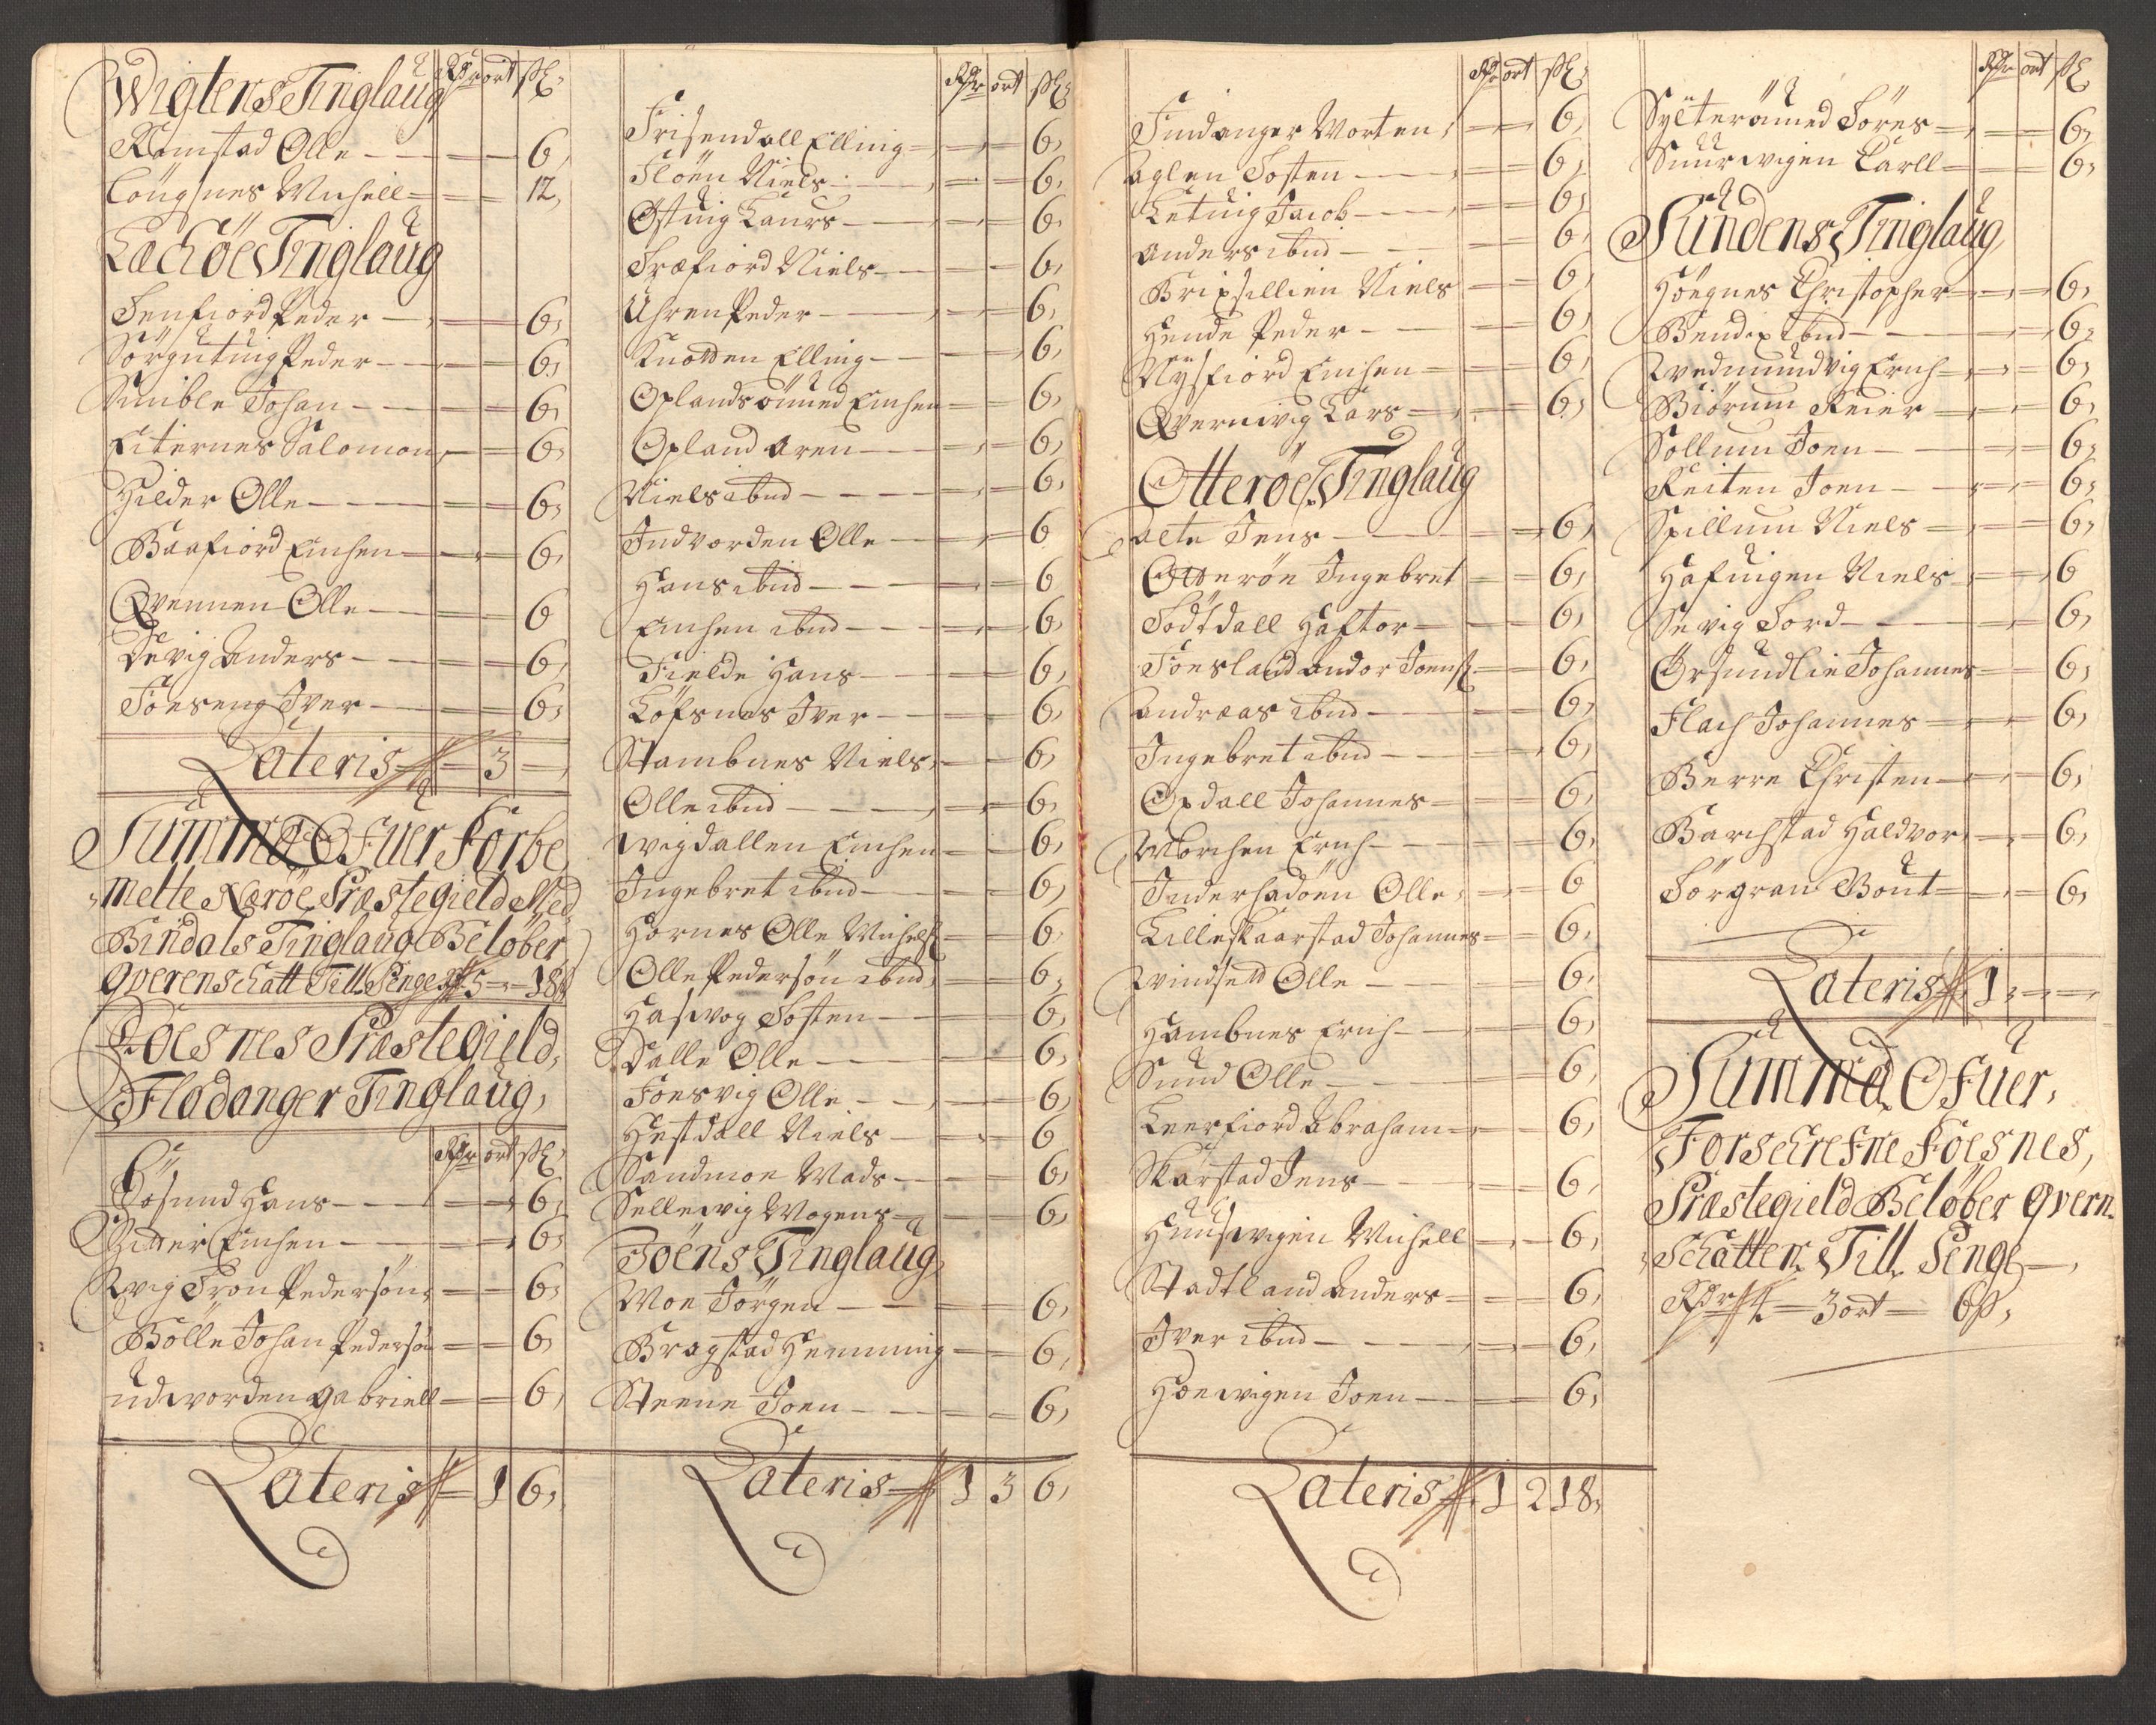 Wigtens Tinglaug Rdr ort ß
Ramstad Olle 6,
Löugnes Michell 12,
Lachöe Tinglaug
Senfiord Peder 6,
Sörgutuig Peder 6,
Johan 6,
Eiternes Salomon 6,
Hilder Olle 6,
Baafiord Einchen 6,
Qvennen Olle 6
Devig Anders 6,
Foeseng Iver 6,
Lateris 3
Summa Ofuer Forbe
mette Næröe Præstegield Med
Bindals Tinglaug Beløber
Qverenschatt Till Penge 5 - 18
Foesnes Præstegield,
Fladanger Tinglaug,
Rdr ort ß
Hans 6,
Einchen 6,
Tron Pedersøn 6,
Bölle Johan Pedersøn 6,
Udvorden Gabriell 6,
Lateris 1 6,
Rdr ort ß
Frisendall Elling 6,
Flöen Niels 6,
Østuig Laurs 6,
Niels 6,
Uhren Peder 6,
Knotten Elling 6,
Oplandsömed Einchen 6,
Opland Aren 6,
Niels ibnd 6,
Indvorden Olle 6
Hans ibnd 6
Einchen ibnd 6,
Fielde Hans 6,
Löfsnes Iver 6,
Stambnes Niels 6,
Olle ibnd 6,
Wigdallen Einchen 6,
Ingebret ibnd 6,
Hornes Olle Michelß 6,
Olle Pedersøn ibnd 6,
Hasvog Josten 6,
Dalle Olle 6,
Foesvig Olle 6,
Hestdall Niels 6
Sandmoe Mads 6,
Sellewig Mogens 6,
Foens Tinglaug,
Moe Jørgen 6,
Bragstad Hemming 6,
Steene Joen 6,
Lateris 1 3 6,
Rdr ort ß
Findanger Morten 6,
Aglen Josten 6,
Ketuig Jacob 6,
Anders ibnd 6
Brixsillien Niels 6,
Hende Peder 6,
Nysfiord Einchen 6,
Qvernvig Lars 6,
Otteröe Tinglaug
Aelte Jens 6,
Otterøe Ingebret 6,
Södtdall Haftor 6,
Foesland Andor Joenß 6,
Andreas ibnd 6,
Ingebret ibnd 6,
Opdall Johannes 6,
Morchen Erich 6,
Inderhadöen Olle 6
Lilleskaarstad Johannes 6,
Windsett Olle 6,
Hambnes Erich 6,
Sund Olle 6,
Leerfiord Abraham 6,
Skarstad Jens 6,
Huuswigen Michell 6,
Stadtland Anders 6,
Iver ibnd 6,
Hoewigen Joen 6,
Lateris 1 2 18,
Rdr ort ß
Sylterömed Sören 6,
Suurwigen Carll 6,
Sundens Tinglaug,
Höegnes Christopher 6,
Bendix ibnd 6,
Wedmundvig Erich 6,
Biörum Reier 6,
Sollum Joen 6,
Reiten Joen 6,
Spillum Niels 6,
Hafuigen Niels 6
Sevig Tord 6,
Örsundlie Johannes 6,
Flach Johannes 6,
Berre Christen 6,
Barchstad Haldvor 6,
Sörgran Bout 6,
Lateris 1
Summa Ofuer,
Forschrefne Foesnes,
Præstegield Beløber qvern
Schatten Till Penge
Rdr 4 - 3 ort - 6 ß,